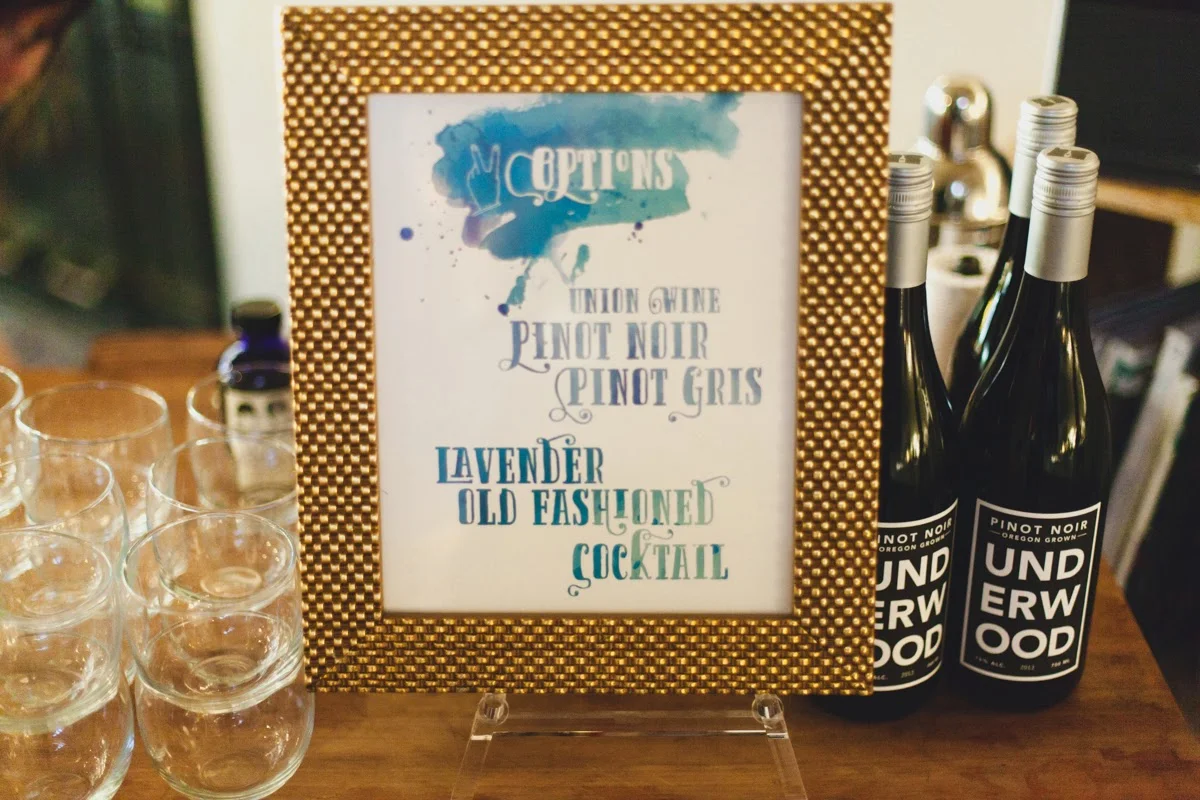 OPTIONS
UNION WINE
PINOT NOIR
PINOT GRIS
LAVENDER
OLD FASHIONED
COCKTAIL
INOT NOIR
OREGON GROWN
UND
ERW
OOD
2012
PINOT NOIR
OREGON GROWN
UND
ERW
OOD
2012
750 ML